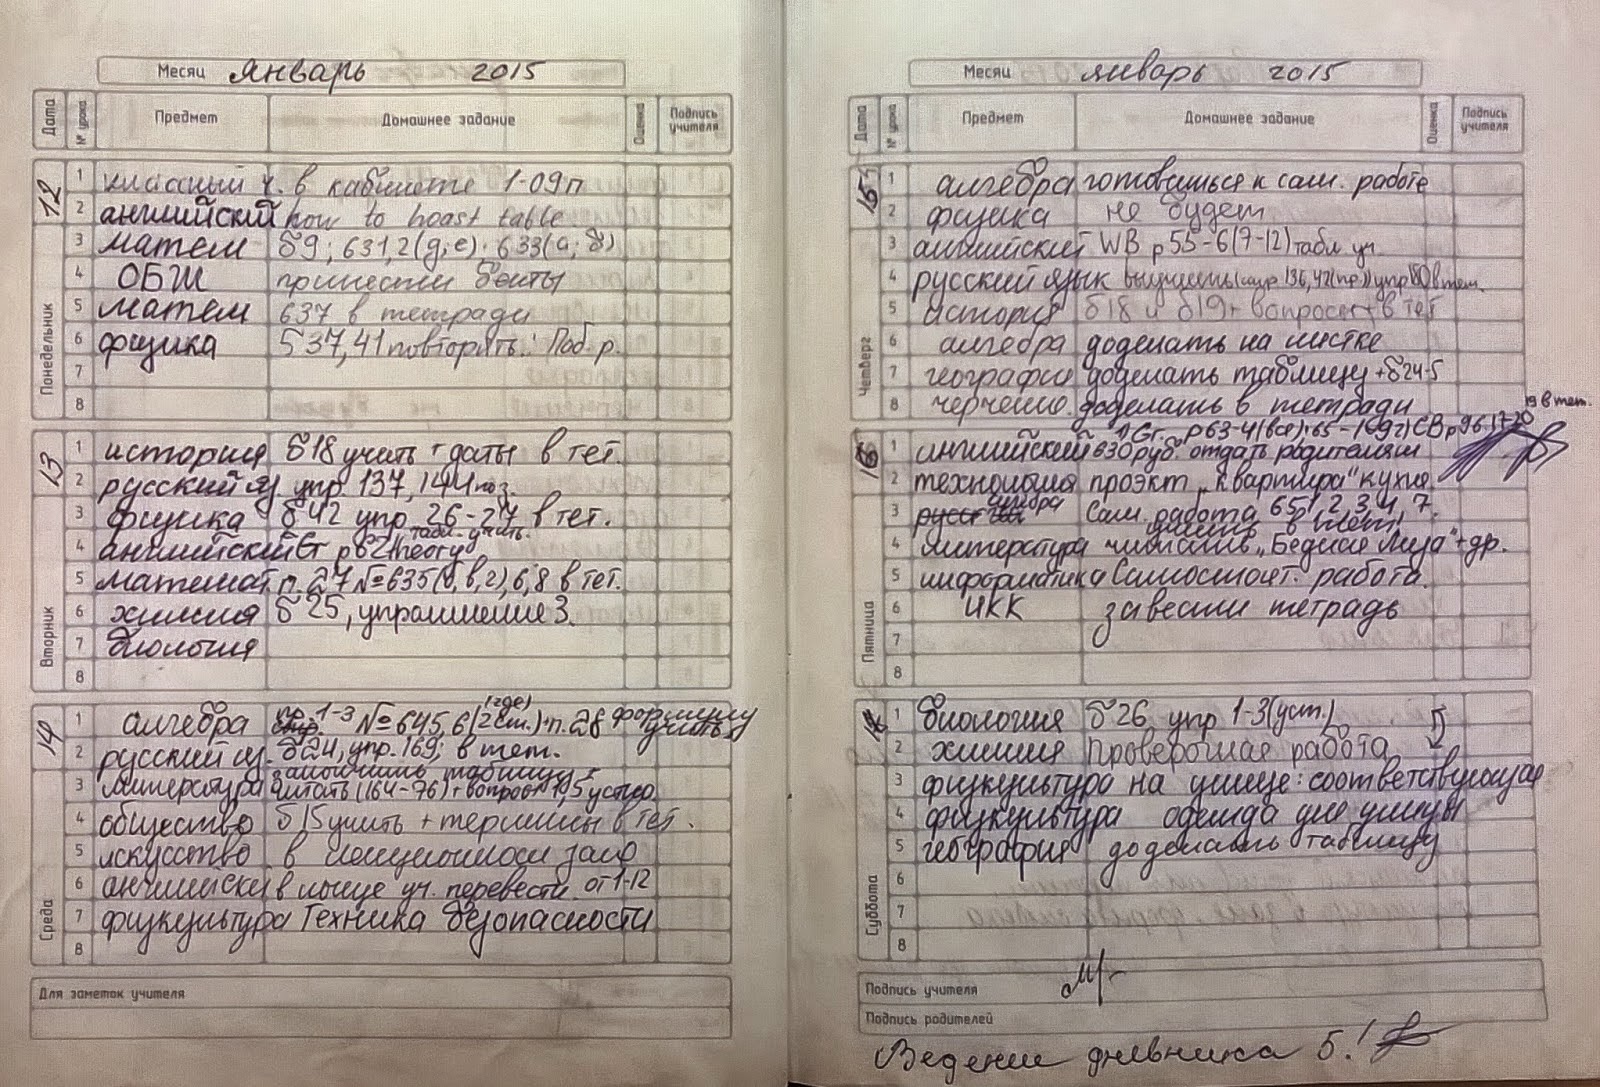 Месяц Январь 2015
Дата № урока Предмет Домашнее задание Оценка Подпись учителя
12 Понедельник
1 классный ч. в кабинете 1-09п
2 английский how to boast table
3 матем §9; 631,2(д;е); 633(а; б)
4 ОБЖ принести бинты
5 матем 637 в тетради
6 физика §37,41 повторить. Лаб. р.
7
8
13 Вторник
1 история §18 учить + даты в тет.
2 русский яз упр. 137, 144
3 физика §42 упр. 26-27 в тет.
4 английский Gr p 62 theory табл. учить.
5 математ. п. 27 №635(в,г),6,8 в тет.
6 химия §25, упражнение 3.
7 биология
8
14 Среда
1 алгебра 1-3 №645,6 (2 ст.) п.28 формулу учить
2 русский яз. §24, упр. 169; в тет.
3 литература закончить таблицу + читать (164-76) + вопрос 1,5 устно
4 общество §15 учить + термины в тет.
5 искусство в
6 английски в конце уч. перевести от 1-12
7 физкультура Техника безопасности
8
Для заметок учителя
Месяц январь 2015
Дата № урока Предмет Домашнее задание Оценка Подпись учителя
15 Четверг
1 алгебра готовиться к сам. работе
2 физика не будет
3 английский WB p 55-6(7-12) табл. уч.
4 русский язык выучить (стр 136, 42(пр.)) упр в тет.
5 история §18 и §19 + вопросы + в тет
6 алгебра доделать на листке
7 географие доделать таблицу + §24-5
8 черчение доделать в тетради
19 в тет.
16 Пятница
Gr. p 63-4(все); 65- CB p 96 17-20
1 английский 630 руб. отдать родителям
2 технология проэкт „квартира" кухня.
3 алгебра Сам. работа 651, 2, 3, 4, 7.
4 литература читать „Бедная Лиза" + др.
5 информатика Самостоят. работа.
6 ИКК завести тетрадь
7
8
Суббота
1 биология §26 упр 1-3 (уст.)
2 химия Проверочная работа
3 физкультура на улице: соответствующая
4 физкультура одежда для улицы
5 география доделать таблицу
6
7
8
Подпись учителя
Подпись родителей
Ведение дневника 5!